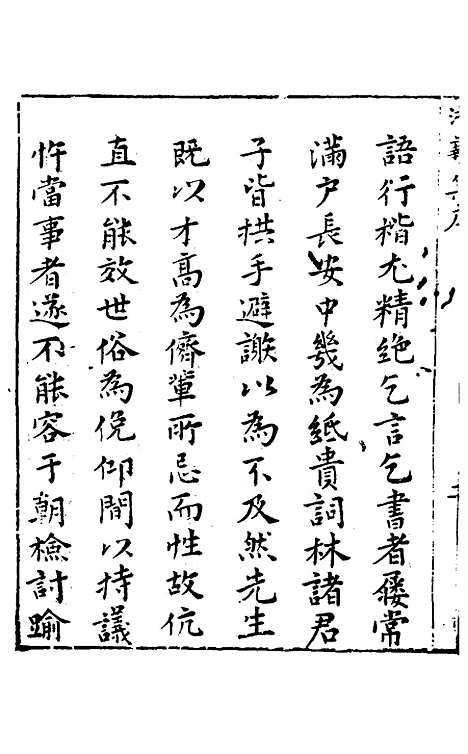 語行楷尤精絕乞言乞書者屨常
滿戶長安中幾為紙貴詞林諸君
子皆拱手避謝以為不及然先生
既以才高為儕輩所忌而性故伉
直不能效世俗為俛仰間以持議
忤當事者遂不能容于朝檢討踰